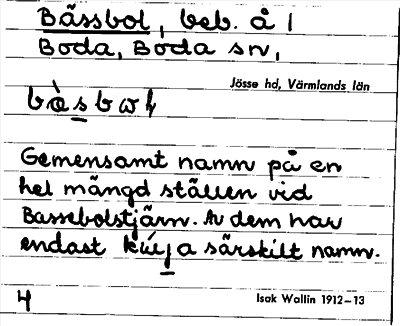 Bässbol, beb. å 1
Boda, Boda sn,
Jösse hd, Värmlands län
Gemensamt namn på en
hel mängd ställen vid
Bassebolstjärn. Av dem har
endast särskilt namn.
4
Isak Wallin 1912–13